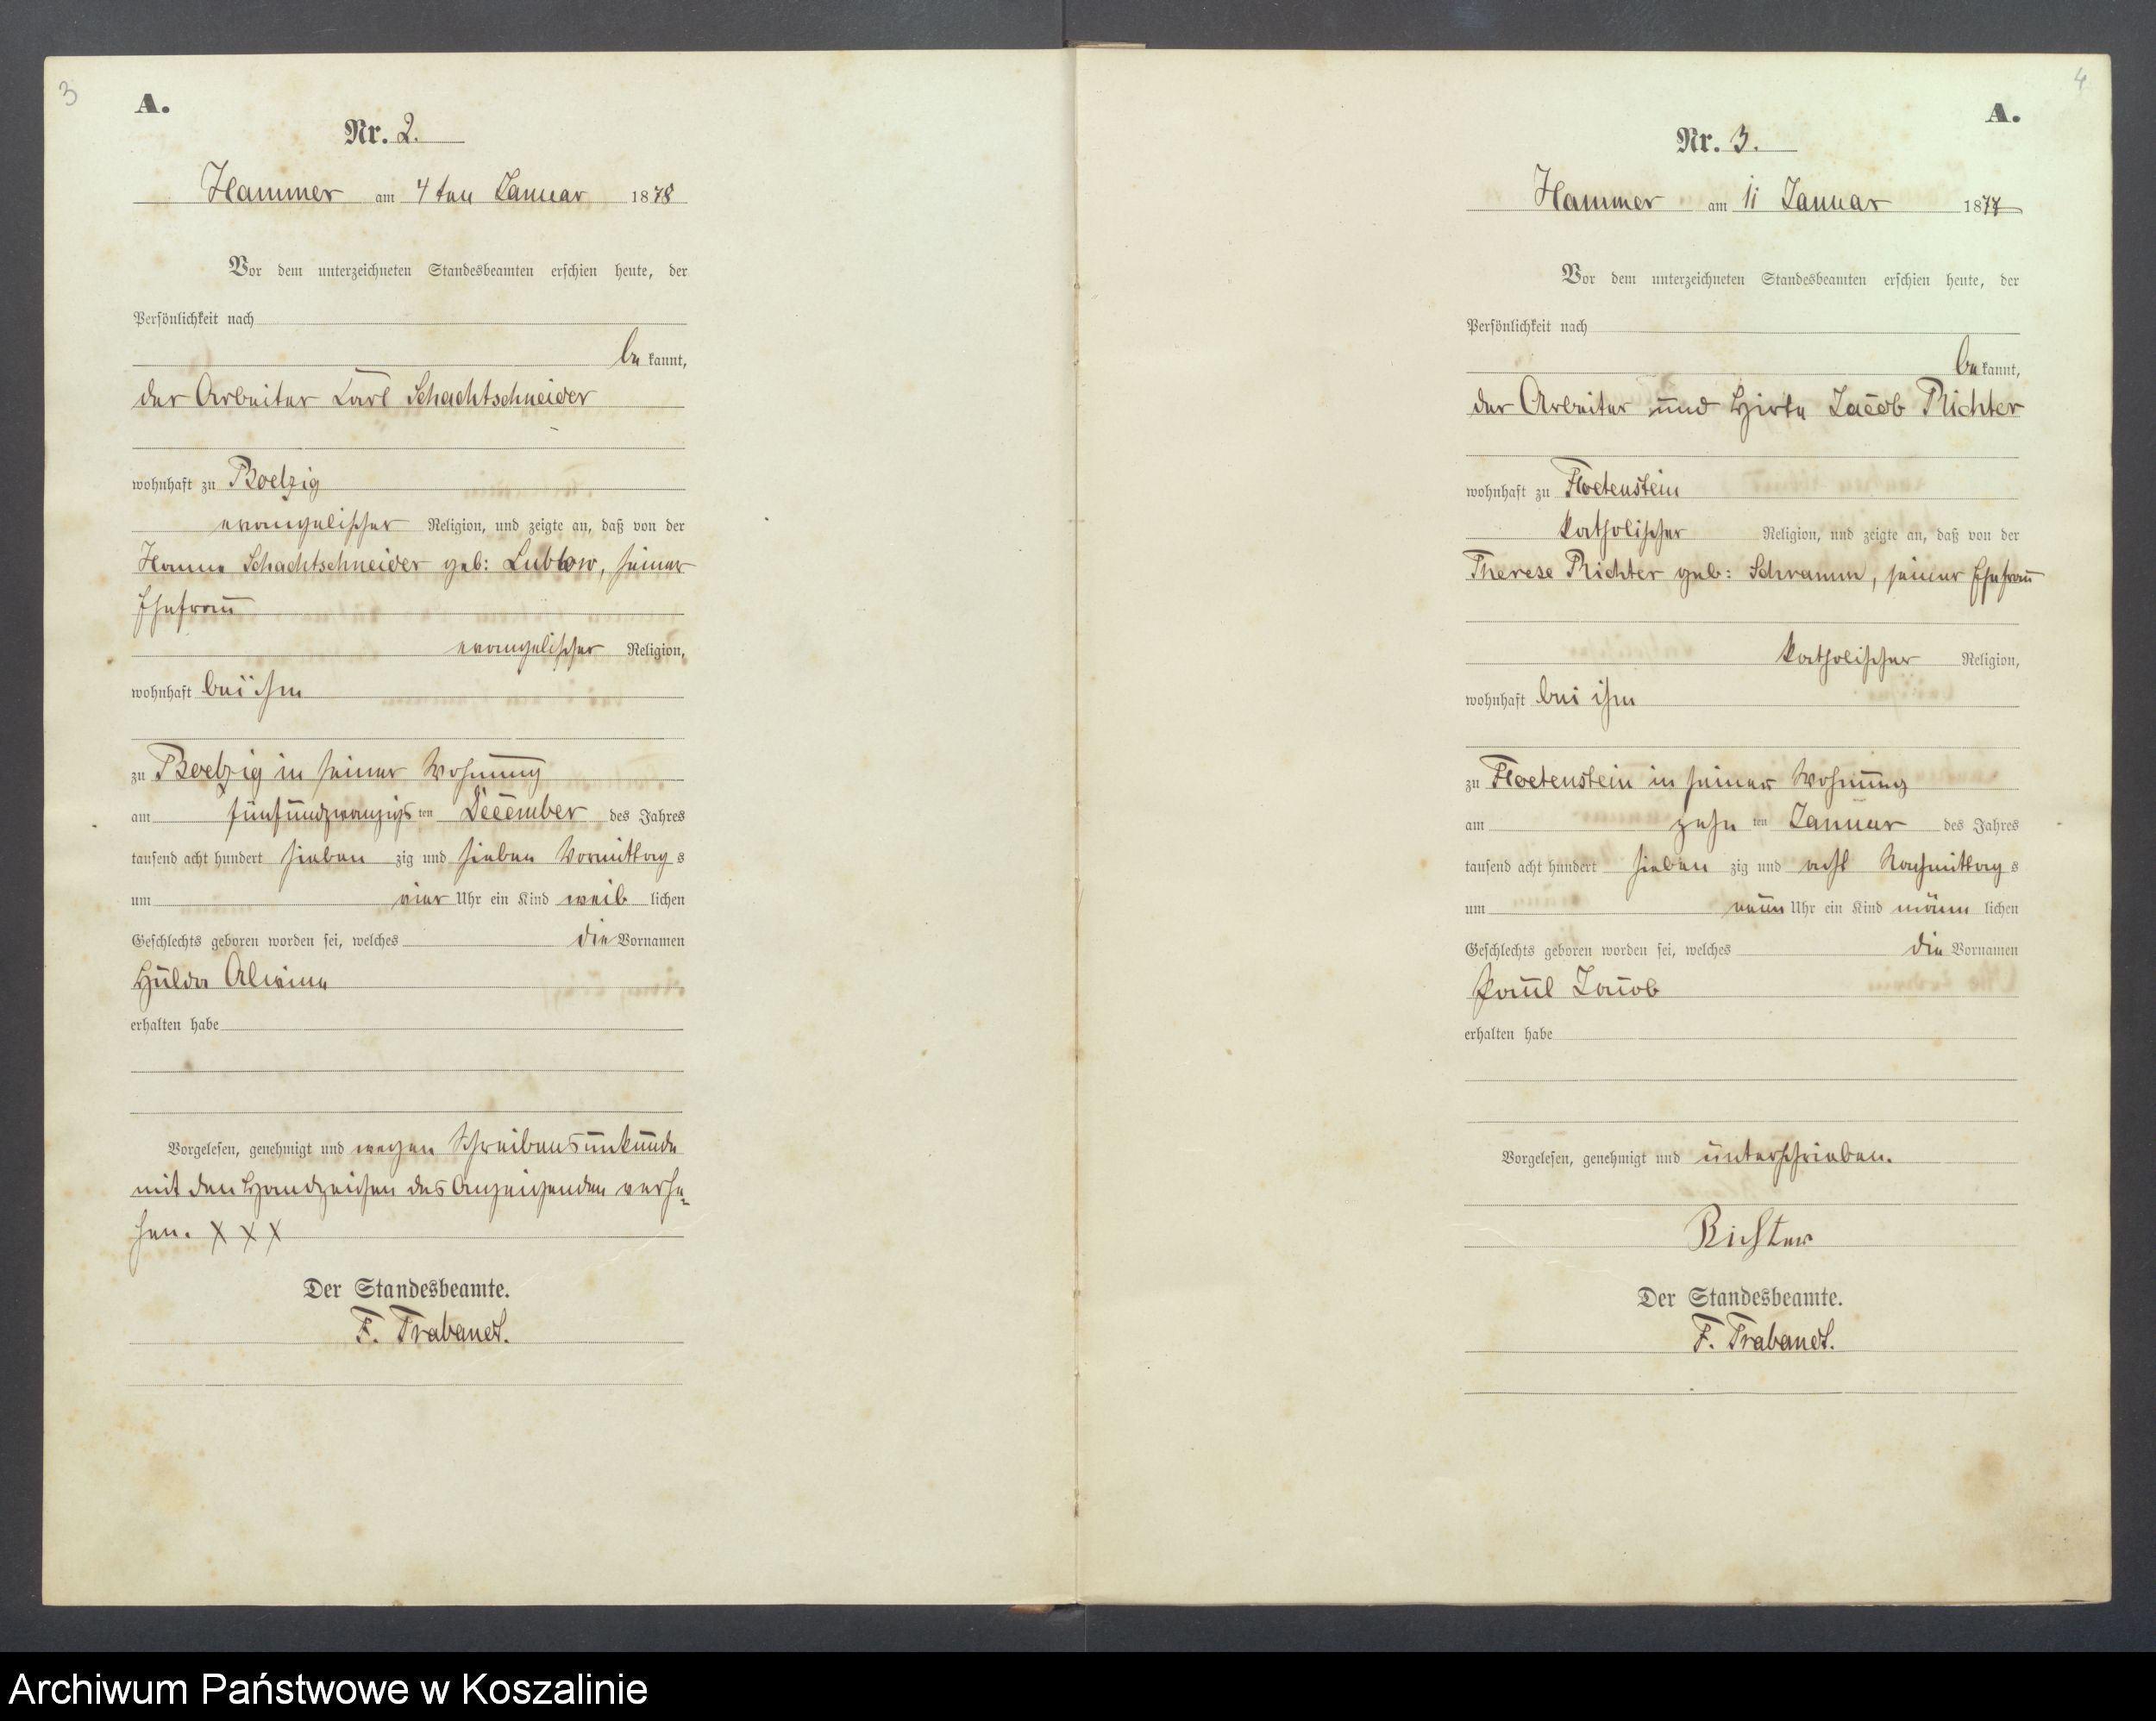 3
A.
Nr. 2.
Hammer am 4ten Januar 1878
Vor dem unterzeichneten Standesbeamten erschien heute, der
Persönlichkeit nach
be kannt,
der Arbeiter Carl Schachtschneider
wohnhaft zu Boelzig
evangelischer Religion, und zeigte an, daß von der
Schachtschneider geb: Lubtow, seiner
Ehefrau
evangelischer Religion,
wohnhaft bei ihm
zu Boelzig in seiner Wohnung
am fünfundzwanzigsten December des Jahres
tausend acht hundert sieben zig und sieben Vormittag s
um vier Uhr ein Kind weib lichen
Geschlechts geboren worden sei, welches die Vornamen
Hulda Alwine
erhalten habe
Vorgelesen, genehmigt und wegen Schreibensunkunde
mit den Handzeichen des Anzeigenden verse=
hen. X X X
Der Standesbeamte.
F. Trabandt.
4
A.
Nr. 3.
Hammer am 11 Januar 1877
Vor dem unterzeichneten Standesbeamten erschien heute, der
Persönlichkeit nach
be kannt,
der Arbeiter und Hirte Jacob Richter
wohnhaft zu Floetenstein
katholischer Religion, und zeigte an, daß von der
Therese Richter geb: Schramm, seiner Ehefrau
katholischer Religion,
wohnhaft bei ihm
zu Floetenstein in seiner Wohnung
am zehn ten Januar des Jahres
tausend acht hundert sieben zig und acht Nachmittag s
um neun Uhr ein Kind männ lichen
Geschlechts geboren worden sei, welches die Vornamen
Paul Jacob
erhalten habe
Vorgelesen, genehmigt und unterschrieben.
Richter
Der Standesbeamte.
F. Trabandt.
Archiwum Państwowe w Koszalinie